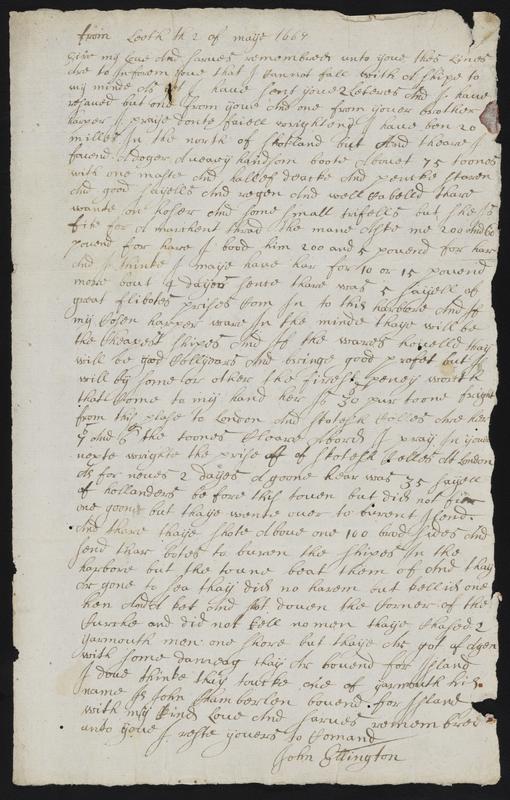 from Leoth th 2 of maye 1667
Give my Love And sarves remembred unto youe thes Lines
Are to Inforem youe that I Cannot fall with A shipe to
my minde As I have sent youe 2 Leteres And I have
resaved but one from youe And one from youer brother
harper I praye donte faiell wrighteng I have ben 20
milles In the north of skotland but And theare I
found A doger A veaey handsom boote About 75 toones
with one maste And halfef deacke And
And good sayells And regen And well Cabelld thare
wante on hoser And some small trifells but shee Is
fite for A marchent thrad the mane Aske me 200 And 60
pouend for have I bood him 200 and 5 pouend for har
And I thinke I maye have har for 10 or 15 pouend
more bout 4 dayes sence thare was 5 sayell of
great flibotes prises Com In to this harbore And If
my Cosen harper ware In the minde thaye will be
the Cheapest shipes And If the warres thay
will be good Collyars And bringe good profet but I
will by some or other the firest peney worth
that Come to my hand her Is 30 pur toone fright
from this plase to London And skotesh Colles Are her
5 And 6 the toones Cleare Abord I pray In youer
nexte wrighte the prise of skotesh Colles At London
As for neues 2 dayes Agoone hear was 35 sayell
of hollanders before this touen but did not fier
one goone but thaye wente over to burent Iland
And thare thaye shote Aboue one 100 brod sides And
send thar botes to buren the shipes In the
harbore but the toune beat them of And thay
Are gone to sea thay did no harem but kelled one
hen And A ket And shot douen the Corner of the
Curche and did not kell no men thaye Chased 2
yarmouth men one shore but thaye Are got of Agen
with some damreag thay Are bouend for Island
I doue thinke thay toucke one of yarmouth his
name Is John Chamberlen bouend for Island
with my kind Love And sarves remembred
unto youe I reste youers to Comand
John Ellington